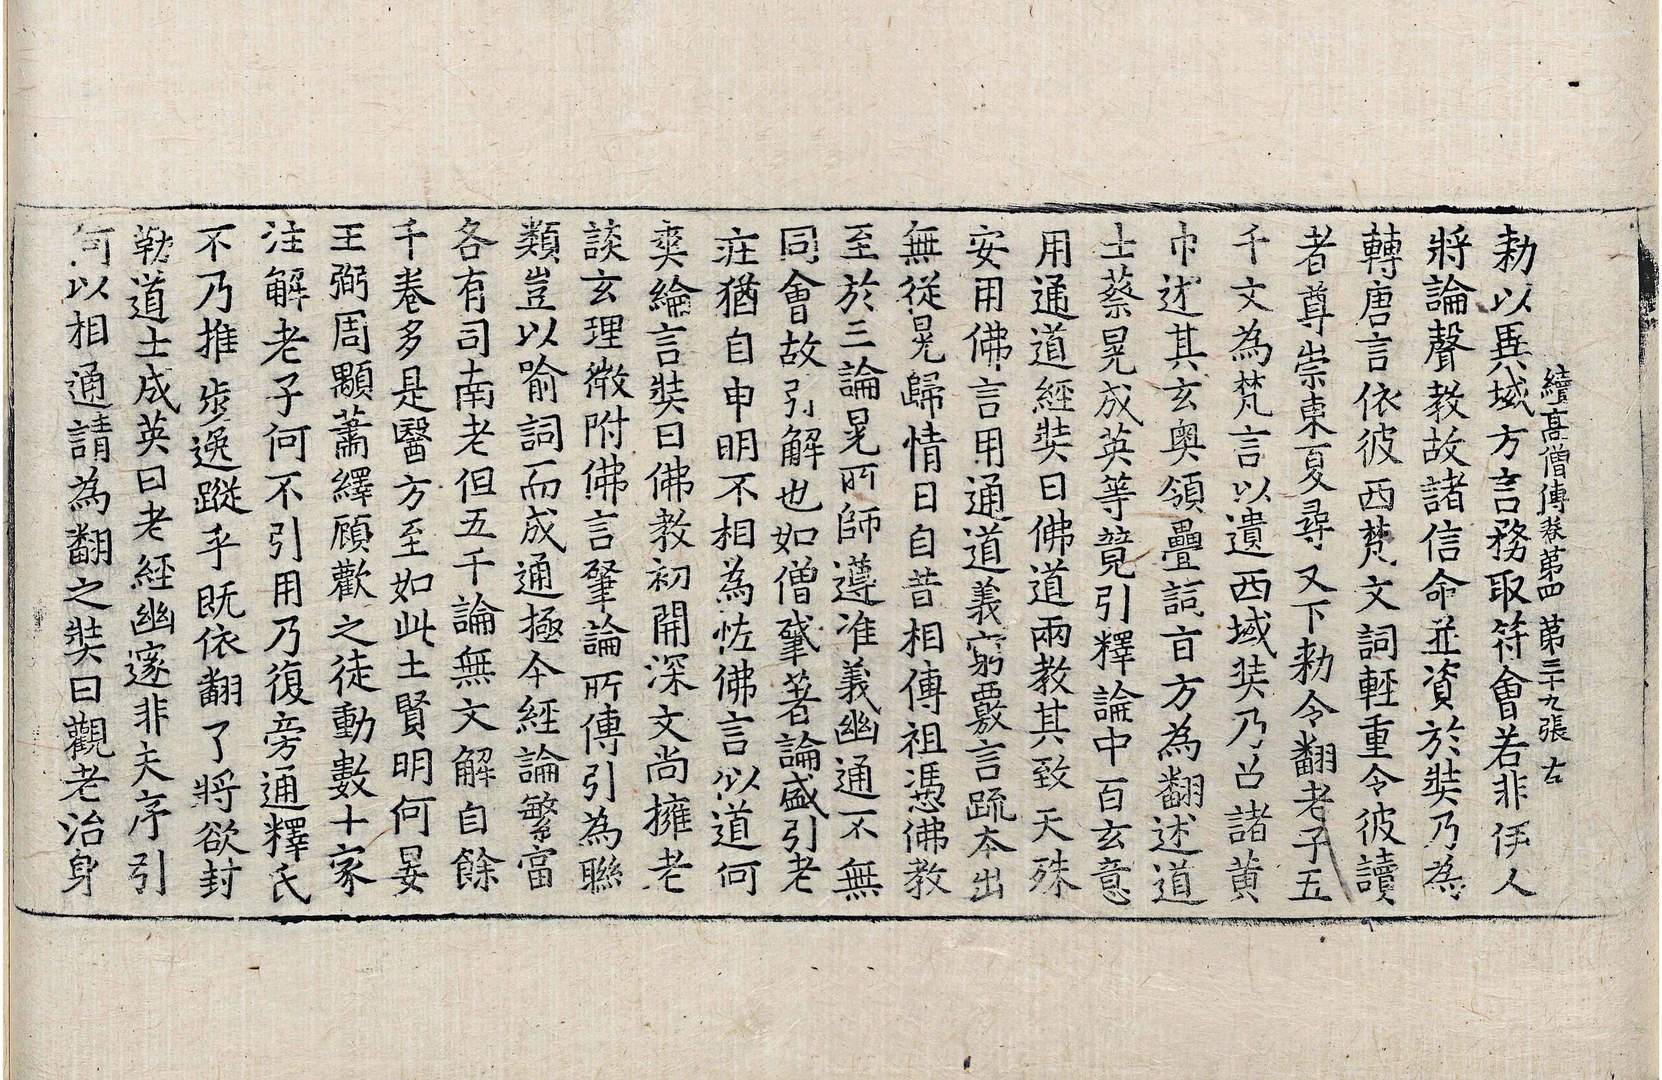 續高僧傳卷第四 第三十九張 右
勑以異域方言務取符會若非伊人
將論聲教故諸信命並資於奘乃為
轉唐言依彼西梵文詞輕重令彼讀
者尊崇東夏尋又下勑令翻老子五
千文為梵言以遺西域奘乃召諸黃
巾述其玄奧領疊詞旨方為翻述道
士蔡晃成英等競引釋論中百玄意
用通道經奘曰佛道兩教其致天殊
安用佛言用通道義窮覈言疏本出
無從晃歸情曰自昔相傳祖憑佛教
至於三論晃所師遵准義幽通不無
同會故引解也如僧肇著論盛引老
庄猶自申明不相為怪佛言似道何
爽綸言奘曰佛教初開深文尚擁老
談玄理微附佛言肇論所傳引為聯
類豈以喻詞而成通極今經論繁富
各有司南老但五千論無文解自餘
千卷多是醫方至如此土賢明何晏
王弼周顒蕭繹顧歡之徒動數十家
注解老子何不引用乃復旁通釋氏
不乃推步逸蹤乎既依翻了將欲封
勒道士成英曰老經幽邃非夫序引
何以相通請為翻之奘曰觀老治身